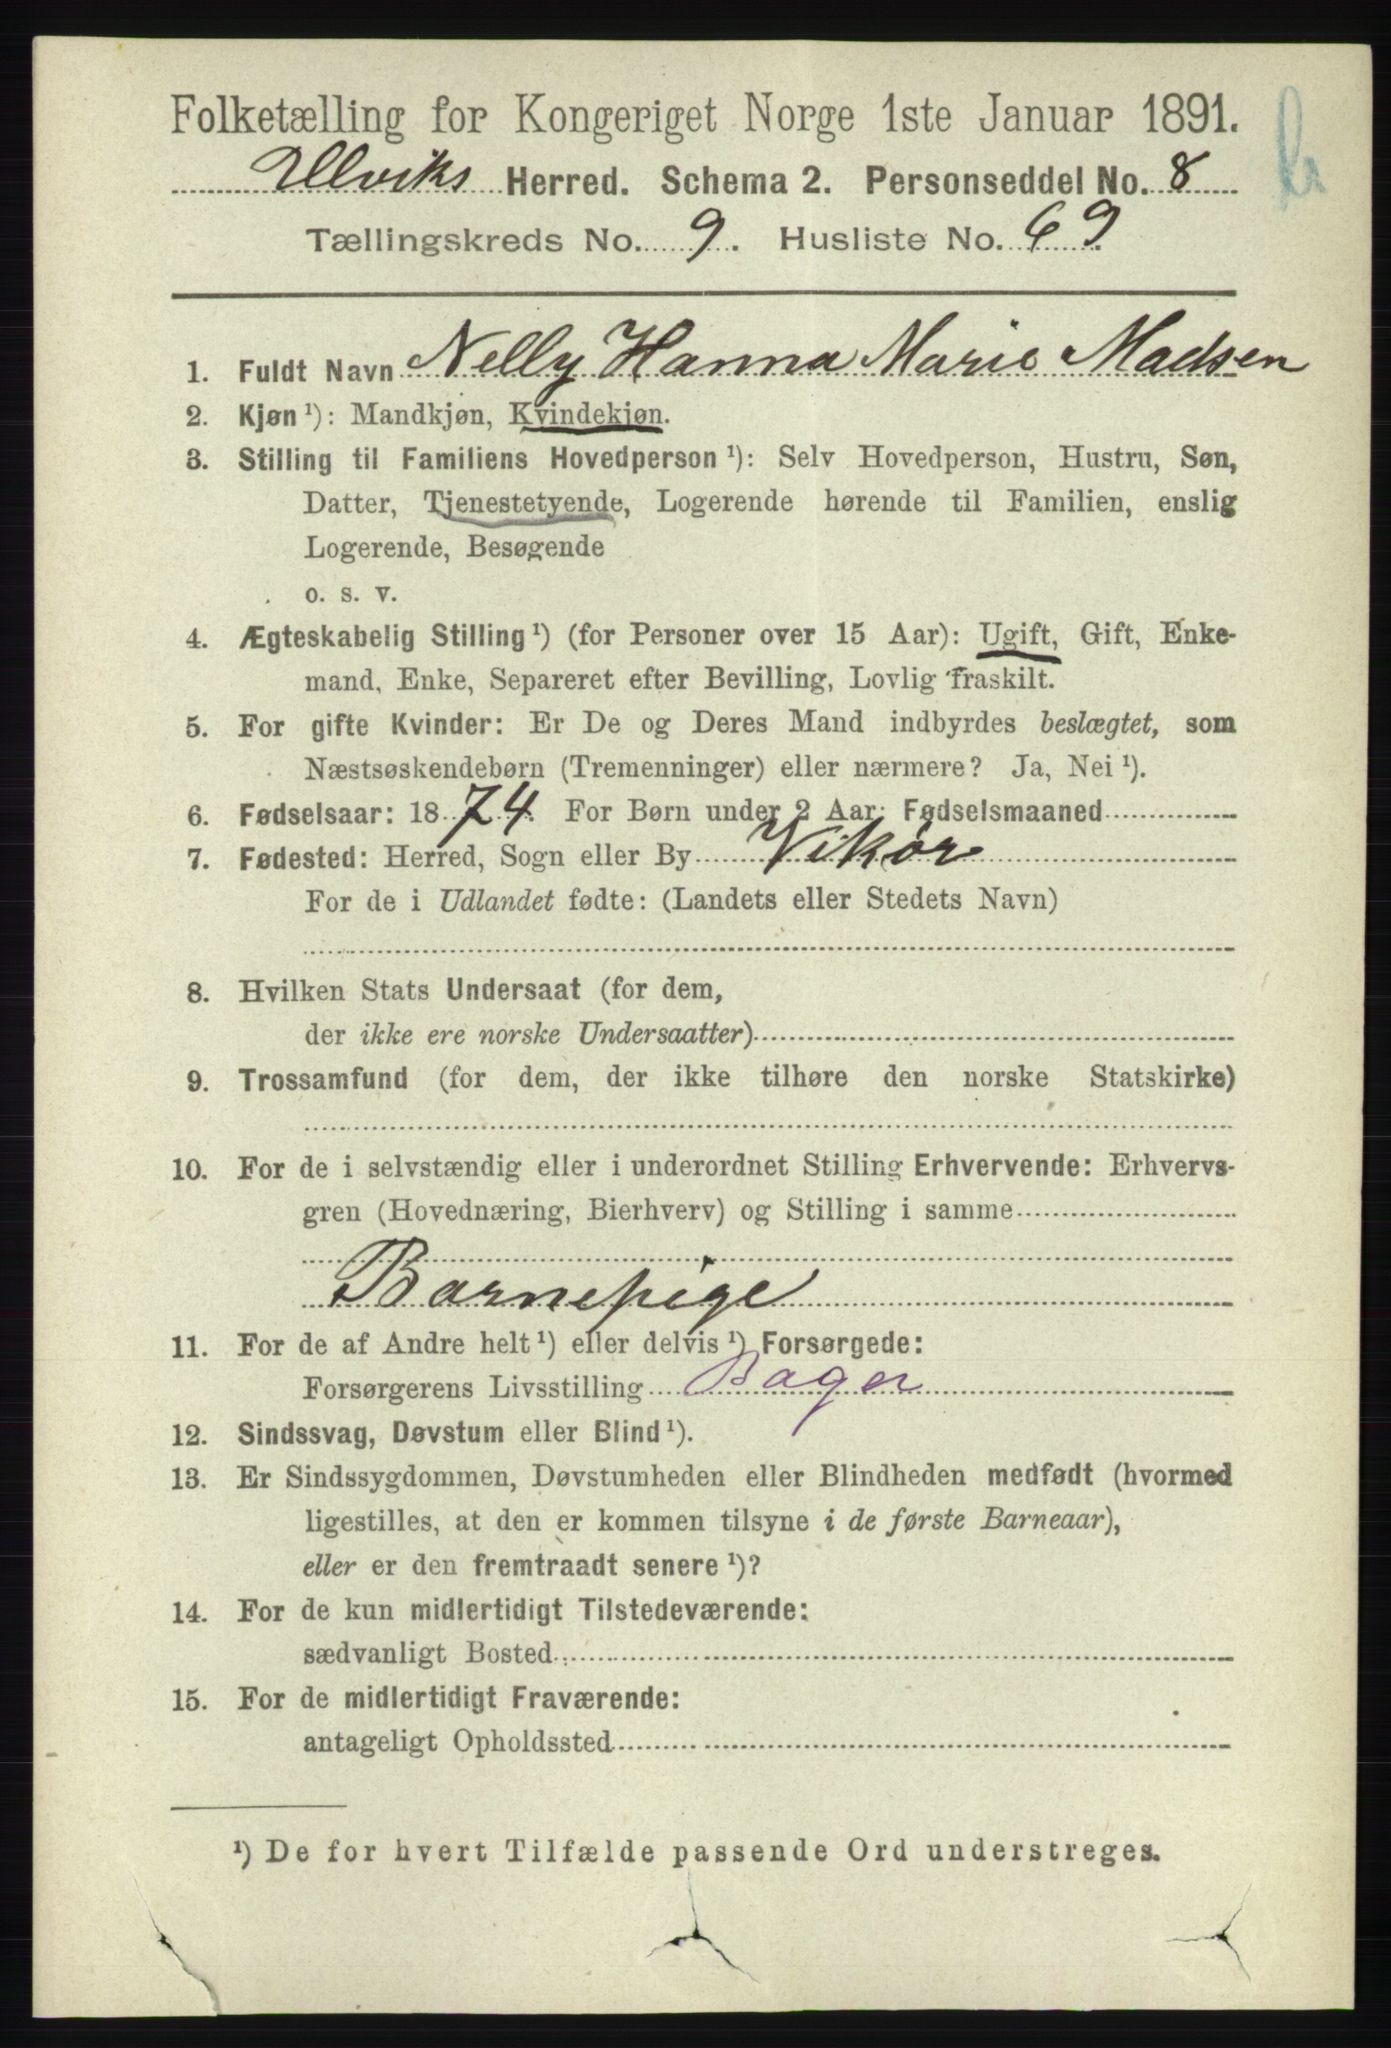 Folketælling for Kongeriget Norge 1ste Januar 1891.
Ulviks Herred. Schema 2. Personseddel No. 8
Tællingskreds No. 9. Husliste No. 69
1. Fuldt Navn Nelly Hanna Marie Madsen
2. Kjøn ¹): Mandkjøn, Kvindekjøn.
3. Stilling til Familiens Hovedperson ¹): Selv Hovedperson, Hustru, Søn,
Datter, Tjenestetyende, Logerende hørende til Familien, enslig
Logerende, Besøgende
o. s. v.
4. Ægteskabelig Stilling ¹) (for Personer over 15 Aar): Ugift, Gift, Enke-
mand, Enke, Separeret efter Bevilling, Lovlig fraskilt.
5. For gifte Kvinder: Er De og Deres Mand indbyrdes beslægtet, som
Næstsøskendebørn (Tremenninger) eller nærmere? Ja, Nei ¹).
6. Fødselsaar: 1874. For Børn under 2 Aar: Fødselsmaaned
7. Fødested: Herred, Sogn eller By Vikør
For de i Udlandet fødte: (Landets eller Stedets Navn)
8. Hvilken Stats Undersaat (for dem,
der ikke ere norske Undersaatter)
9. Trossamfund (for dem, der ikke tilhøre den norske Statskirke)
10. For de i selvstændig eller i underordnet Stilling Erhvervende: Erhvervs-
gren (Hovednæring, Bierhverv) og Stilling i samme
Barnepige
11. For de af Andre helt ¹) eller delvis ¹) Forsørgede:
Forsørgerens Livsstilling Bager
12. Sindssvag, Døvstum eller Blind ¹).
13. Er Sindssygdommen, Døvstumheden eller Blindheden medfødt (hvormed
ligestilles, at den er kommen tilsyne i de første Barneaar),
eller er den fremtraadt senere ¹)?
14. For de kun midlertidigt Tilstedeværende:
sædvanligt Bosted
15. For de midlertidigt Fraværende:
antageligt Opholdssted
¹) De for hvert Tilfælde passende Ord understreges.